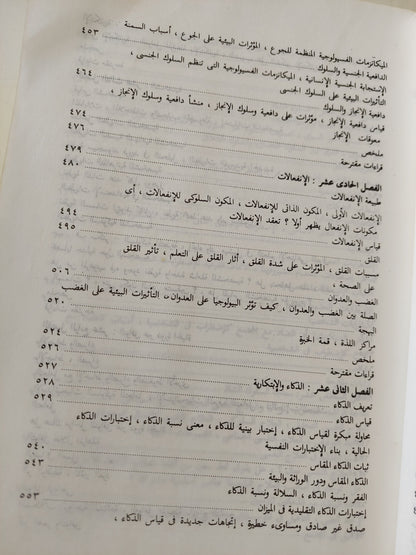 الميكانزمات الفسيولوجية المنظمة للجوع ، المؤثرات البيئية على الجوع ، أسباب السمنة
الدافعية الجنسية والسلوك ٤٥٣
الإستجابة الجنسية الإنسانية ، الميكانزمات الفسيولوجية التى تنظم السلوك الجنسى ،
التأثيرات البيئية على السلوك الجنسى
دافعية الإنجاز والسلوك ٤٦٤
قياس دافعية الإنجاز ، مؤثرات على دافعية وسلوك الإنجاز ، منشأ دافعية وسلوك الإنجاز ،
معوقات الإنجاز ٤٧٤
ملخص ٤٧٦
قراءات مقترحة ٤٧٩
الفصل الحادى عشر : الإنفعالات ٤٨٠
طبيعة الإنفعالات
الإنفعالات الأولى ، المكون الذاتى للإنفعالات ، المكون السلوكى للإنفعالات ، أي
مكونات الإنفعال يظهر أولا ؟ تعقد الإنفعالات ٤٩٤
قياس الإنفعالات ٤٩٥
القلق
مسببات القلق ، المؤثرات على شدة القلق ، أثار القلق على التعلم ، تأثير القلق
على الصحة ،
الغضب والعدوان ٥٠٦
الصلة بين الغضب والعدوان ، كيف تؤثر البيولوجيا على العدوان ، التأثيرات البيئية على الغضب
البهجة ٥٢٠
مراكز اللذة ، قمة الخبرة
ملخص ٥٢٤
قراءات مقترحة ٥٢٦
الفصل الثانى عشر : الذكاء والإبتكارية ٥٢٧
تعريف الذكاء ٥٢٨
قياس الذكاء ٥٢٩
محاولة مبكرة لقياس الذكاء ، إختبار بينية للذكاء ، معنى نسبة الذكاء ، إختبارات الذكاء
الحالية ، بناء الإختبارات النفسية
ثبات الذكاء المقاس ٥٤٠
الذكاء المقاس ودور الوراثة والبيئة ٥٤٣
الفقر ونسبة الذكاء ، السلالة ونسبة الذكاء
إختبارات الذكاء التقليدية فى الميزان ٥٥٣
صدق غير صادق ومساوىء خطيرة ، إتجاهات جديدة فى قياس الذكاء ،